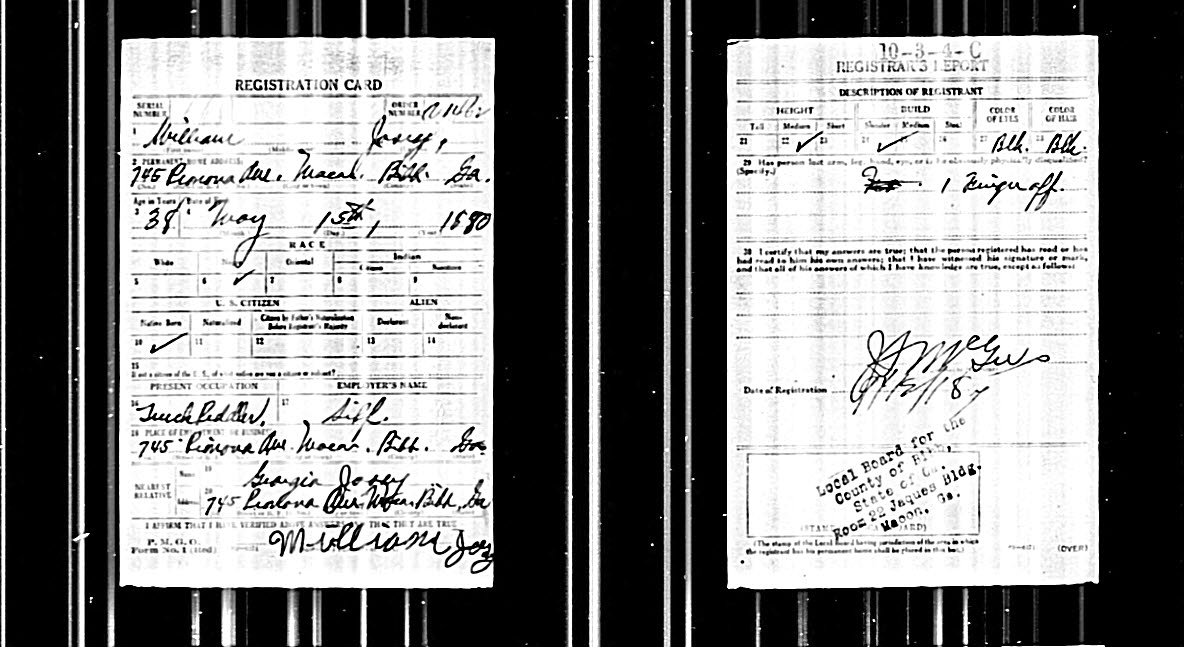 REGISTRATION CARD
SERIAL NUMBER
ORDER NUMBER
1 William Josey,
2 PERMANENT HOME ADDRESS:
745 Pionona Ave. Macon. Bibb. Ga.
Age in Years Date of Birth
3 38 4 May 15th, 1880
(Month) (Day) (Year)
RACE
White Oriental Indian
Citizen
5 6 ✓ 7 8 9
U. S. CITIZEN ALIEN
Native Born Naturalized Citizen by Father's Naturalization Before Registrant's Majority Declarant Non-declarant
10 ✓ 11 12 13 14
15
If not a citizen of the U. S., of what nation are you a citizen or subject?
PRESENT OCCUPATION EMPLOYER'S NAME
16 Truck Peddler. 17 Self.
18 PLACE OF EMPLOYMENT OR BUSINESS:
745 Pionona Ave. Macon. Bibb. Ga.
NEAREST RELATIVE Name 19 Georgia Josey
Address 20 745 Pionona Ave. Macon. Bibb, Ga
I AFFIRM THAT I HAVE VERIFIED ABOVE ANSWERS THAT THEY ARE TRUE
P. M. G. O.
Form No. 1 (Red)
William
10-3-4-C
REGISTRAR'S REPORT
DESCRIPTION OF REGISTRANT
HEIGHT BUILD COLOR OF EYES COLOR OF HAIR
Tall Medium Short Slender Medium Stout
21 22 ✓ 23 24 ✓ 26 27 Blk. 28 Blk.
29 Has person lost arm, leg, hand, eye, or is he obviously physically disqualified?
(Specify.) 1 Finger off.
30 I certify that my answers are true; that the person registered has read or has
had read to him his own answers; that I have witnessed his signature or mark,
and that all of his answers of which I have knowledge are true, except as follows:
Date of Registration
Local Board for the
County of Bibb,
State of Ga.
Room 22 Jaques Bldg.
Macon, Ga.
(The stamp of the Local Board having jurisdiction of the area in which
the registrant has his permanent home shall be placed in this box.)
(OVER)